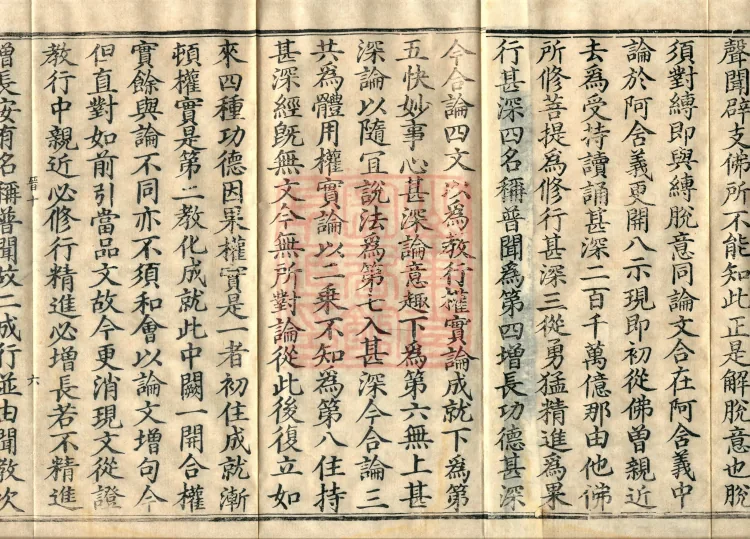 聲聞辟支佛所不能知此正是解脫意也脫
須對縛即與縛脫意同論文合在阿含義中
論於阿含義更開八示現即初從佛曽親近
去為受持讀誦甚深二百千萬億那由他佛
所修菩提為修行甚深三從勇猛精進為果
行甚深四名稱普聞為第四增長功德甚深
今合論四文以為教行權實論成就下為第
五快妙事心甚深論意趣下為第六無上甚
深論以隨宜說法為第七入甚深今合論三
共為體用權實論以二乗不知為第八住持
甚深經既無文今無所對論從此後復立如
來四種功德因果權實是一者初住成就漸
頓權實是第二教化成就此中闕一開合權
實餘與論不同亦不須和會以論文增句今
但直對如前引當品文故今更消現文從證
晉十 六
教行中親近必修行精進必增長若不精進
增長安有名稱普聞故二成行並由聞教次